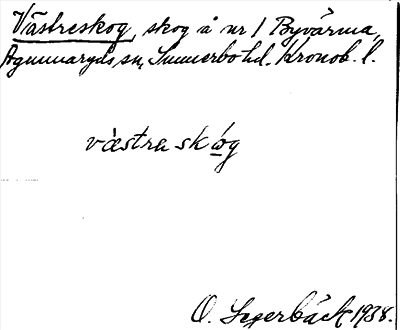 Västreskog, skog å nr 1 Byvärma,
Agunnaryds sn, Sunnerbo hd. Kronob. l.
västra skóg
O. Segerbäck 1938.